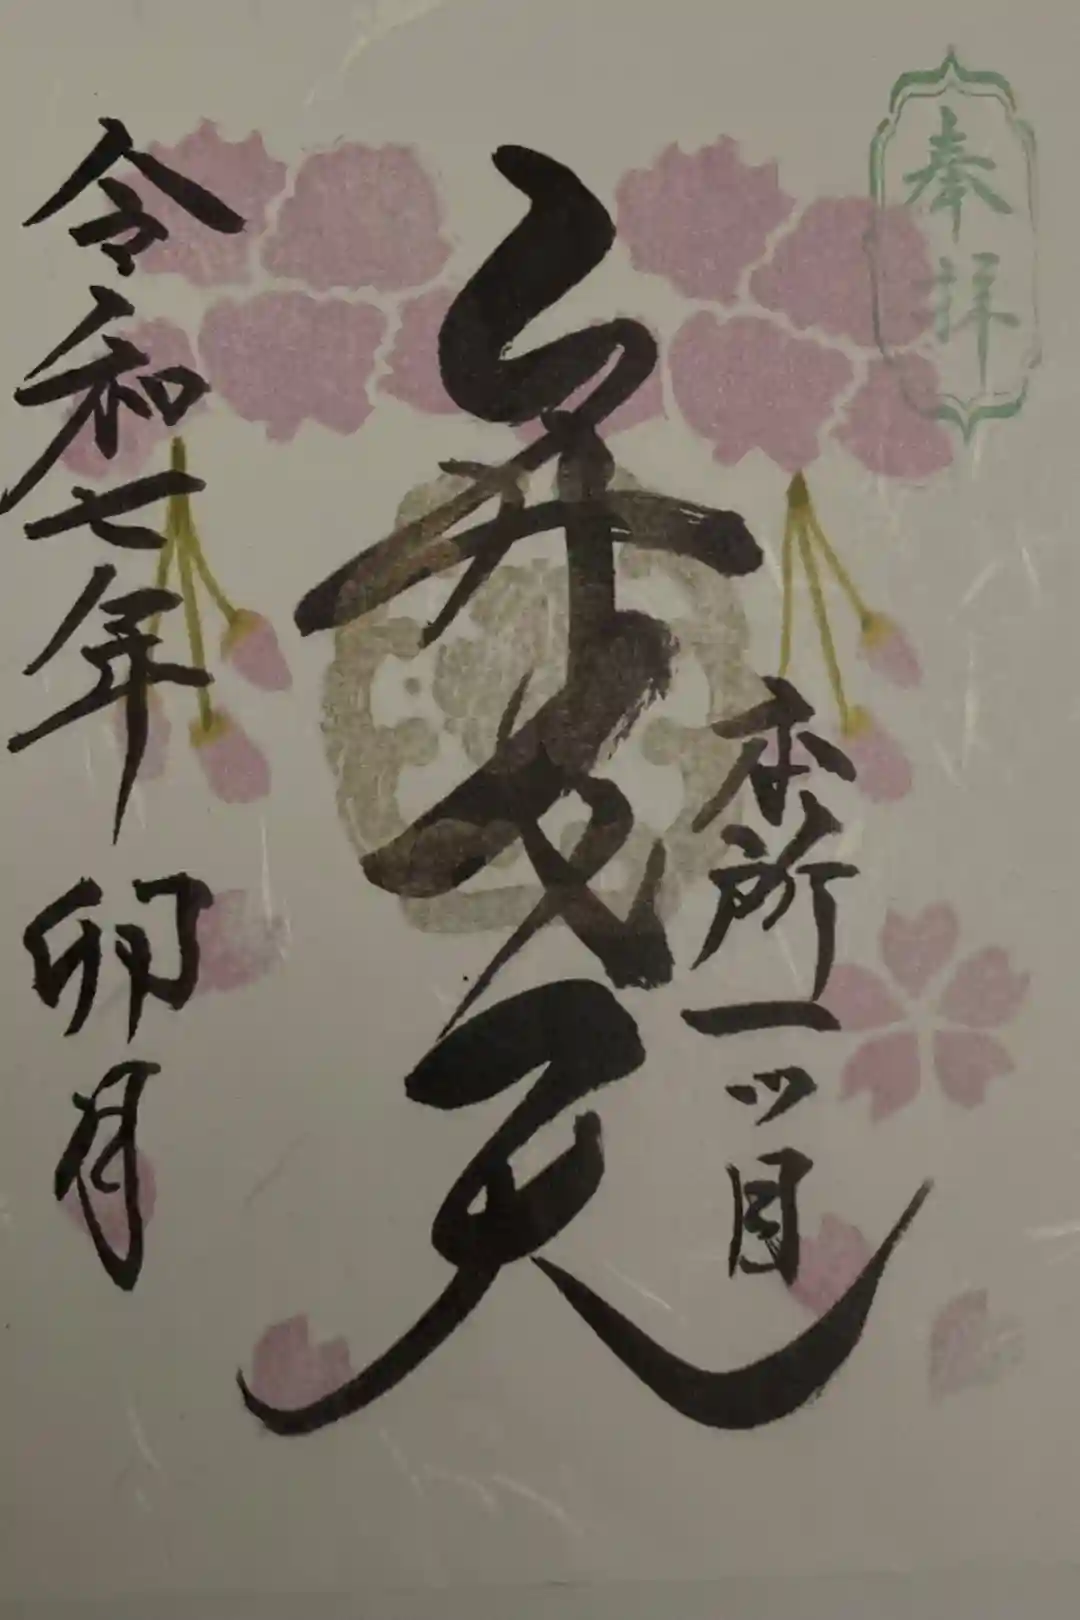 奉拝
本所一ツ目
弁才天
令和七年 卯月